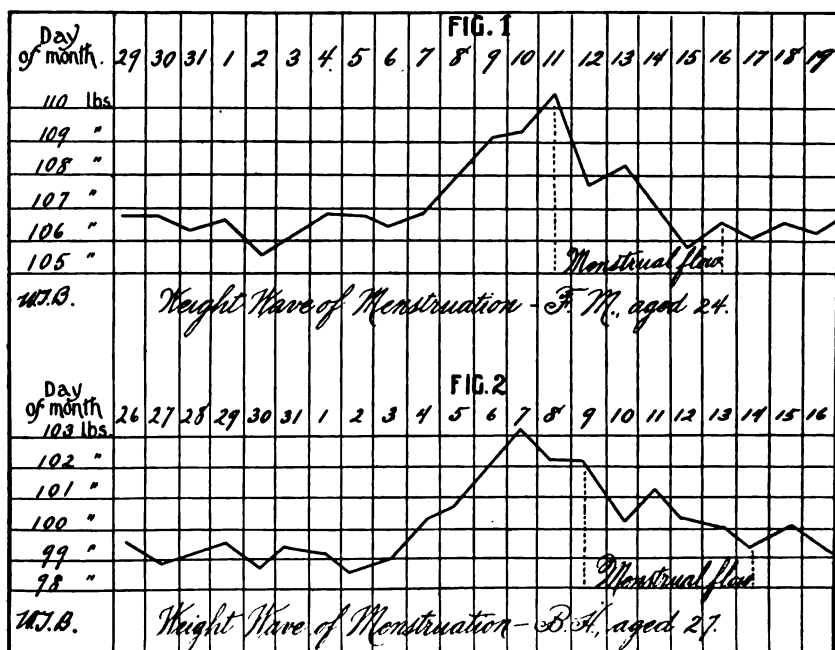 FIG. 1
Day
of month. 29 30 31 1 2 3 4 5 6 7 8 9 10 11 12 13 14 15 16 17 18 19
110 lbs.
109 "
108 "
107 "
106 "
105 " Menstrual flow.
W.T.B. Weight Wave of Menstruation - F. M., aged 24.
FIG. 2
Day
of month 26 27 28 29 30 31 1 2 3 4 5 6 7 8 9 10 11 12 13 14 15 16
103 lbs.
102 "
101 "
100 "
99 "
98 " Menstrual flow.
W.T.B. Weight Wave of Menstruation - B. H., aged 27.